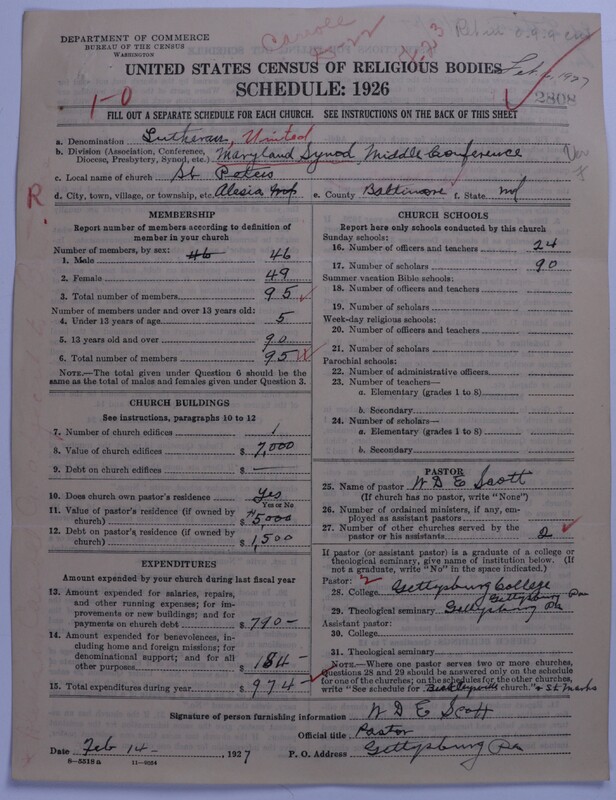 DEPARTMENT OF COMMERCE
BUREAU OF THE CENSUS
WASHINGTON
Carroll
UNITED STATES CENSUS OF RELIGIOUS BODIES Feb 1927
SCHEDULE: 1926
1-0
2808
FILL OUT A SEPARATE SCHEDULE FOR EACH CHURCH. SEE INSTRUCTIONS ON THE BACK OF THIS SHEET
a. Denomination Lutheran, United
b. Division (Association, Conference, Diocese, Presbytery, Synod, etc.) Maryland Synod Middle Conference
c. Local name of church St Peters
R.
d. City, town, village, or township, etc. Alesia Md e. County Baltimore f. State Md
MEMBERSHIP
Report number of members according to definition of
member in your church
Number of members, by sex: 46
1. Male 46
2. Female 49
3. Total number of members 95
Number of members under and over 13 years old:
4. Under 13 years of age 5
5. 13 years old and over 90
6. Total number of members 95
NOTE.—The total given under Question 6 should be the
same as the total of males and females given under Question 3.
CHURCH BUILDINGS
See instructions, paragraphs 10 to 12
7. Number of church edifices 1
8. Value of church edifices $ 7,000
9. Debt on church edifices $ —
10. Does church own pastor's residence Yes
Yes or No
11. Value of pastor's residence (if owned by
church) $ 5,000
12. Debt on pastor's residence (if owned by
church) $ 1,500
EXPENDITURES
Amount expended by your church during last fiscal year
13. Amount expended for salaries, repairs,
and other running expenses; for im-
provements or new buildings; and for
payments on church debt $ 790—
14. Amount expended for benevolences,
including home and foreign missions; for
denominational support; and for all
other purposes $ 184—
15. Total expenditures during year $ 974—
CHURCH SCHOOLS
Report here only schools conducted by this church
Sunday schools:
16. Number of officers and teachers 24
17. Number of scholars 90
Summer vacation Bible schools:
18. Number of officers and teachers
19. Number of scholars
Week-day religious schools:
20. Number of officers and teachers
21. Number of scholars
Parochial schools:
22. Number of administrative officers
23. Number of teachers—
a. Elementary (grades 1 to 8)
b. Secondary
24. Number of scholars—
a. Elementary (grades 1 to 8)
b. Secondary
PASTOR
25. Name of pastor W D E Scott
(If church has no pastor, write "None")
26. Number of ordained ministers, if any, em-
ployed as assistant pastors
27. Number of other churches served by the
pastor or his assistants 2
If pastor (or assistant pastor) is a graduate of a college or
theological seminary, give name of institution below. (If
not a graduate, write "No" in the space indicated.)
Pastor: 2
28. College Gettysburg College
Gettysburg Pa
29. Theological seminary Gettysburg Pa
Assistant pastor:
30. College
31. Theological seminary
NOTE—Where one pastor serves two or more churches,
Questions 28 and 29 should be answered only on the schedule
for one of the churches; on the schedules for the other churches,
write "See schedule for church." & St Marks
Signature of person furnishing information W D E Scott
Official title Pastor
Date Feb 14— , 1927 P. O. Address Gettysburg Pa
8—5518 a 11—9884